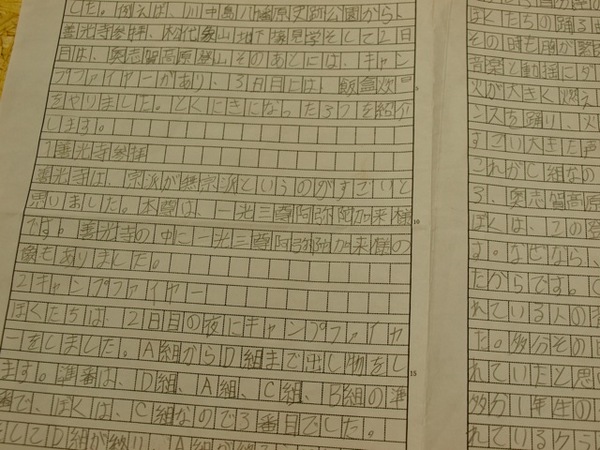 した。例えば、川中島八幡原史跡公園から、
善光寺参拝、松代象山地下壕見学そして2日
目は、奥志賀高原登山そのあとには、キャン
プファイヤーがあり、3日目には、飯盒炊
をやりました。とくにきになった3つを紹介
します。
1善光寺参拝
善光寺は、宗派が無宗派というのがすごいと
思いました。本尊は、一光三尊阿弥陀加来様
です。善光寺の中に一光三尊阿弥陀加来様の
像もありました。
2キャンプファイヤー
ぼくたちは、2日目の夜にキャンプファイヤ
ーをしました。A組からD組まで出し物をし
ます。準番は、D組、A組、C組、B組の準
番で、ぼくは、C組なので3番目でした。
そしてD組が終り、A組が
ぼくたちの踊る
その時も胸が
音楽と動揺に
火が大きく燃え
ンスを踊り、火
すごい大きた声
これがC組なの
3、奥志賀高原
ぼくは、この登
す。なぜなら、
たからです。
れている人の
た。多分その
れていたと思
多分1年生の
れているクラ
5
10
15